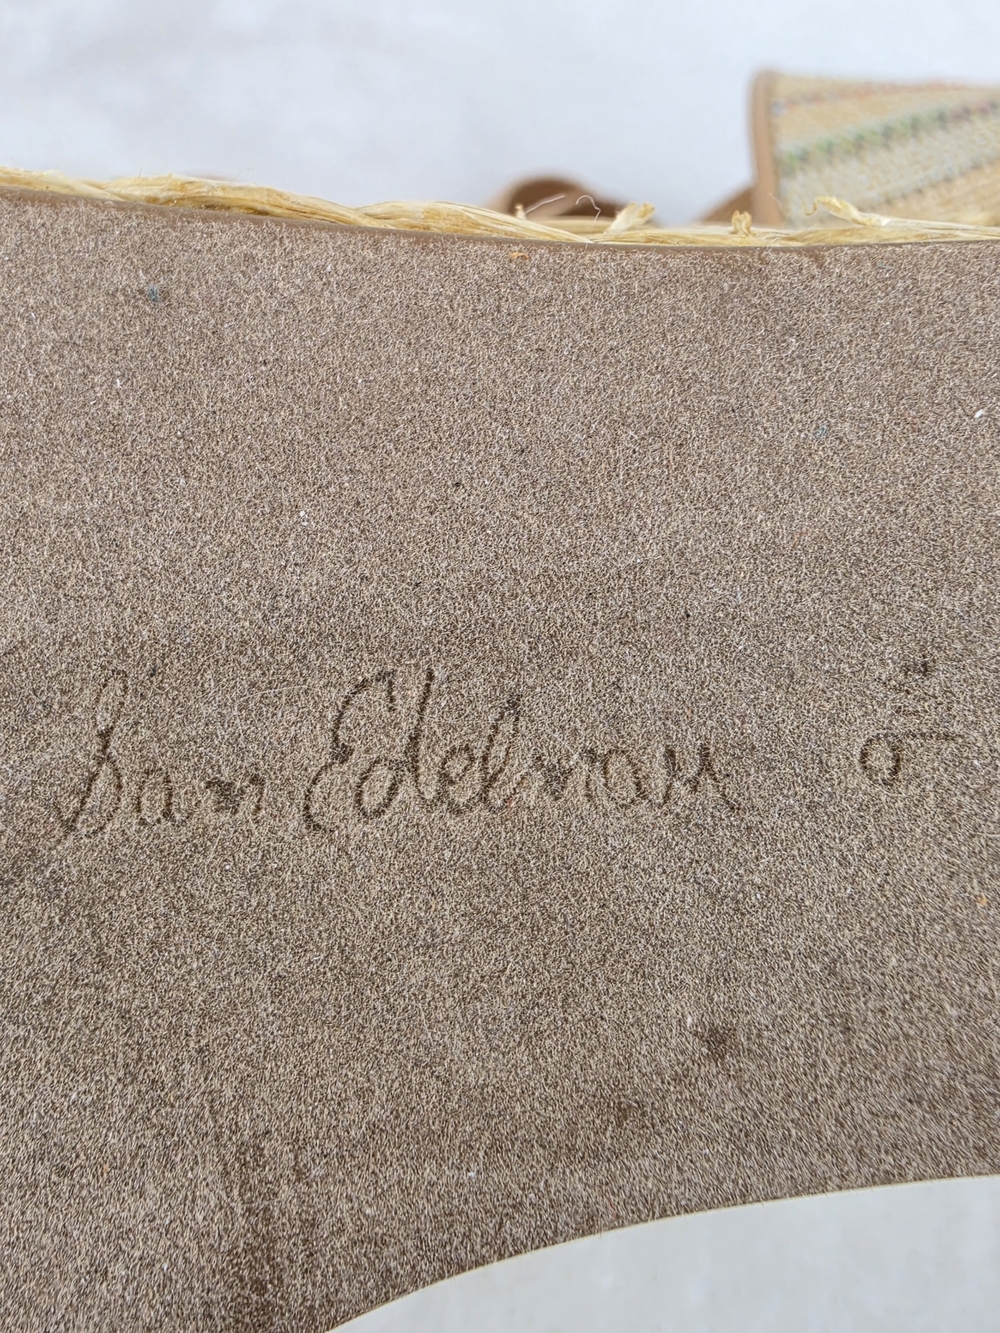 Sam Edelman